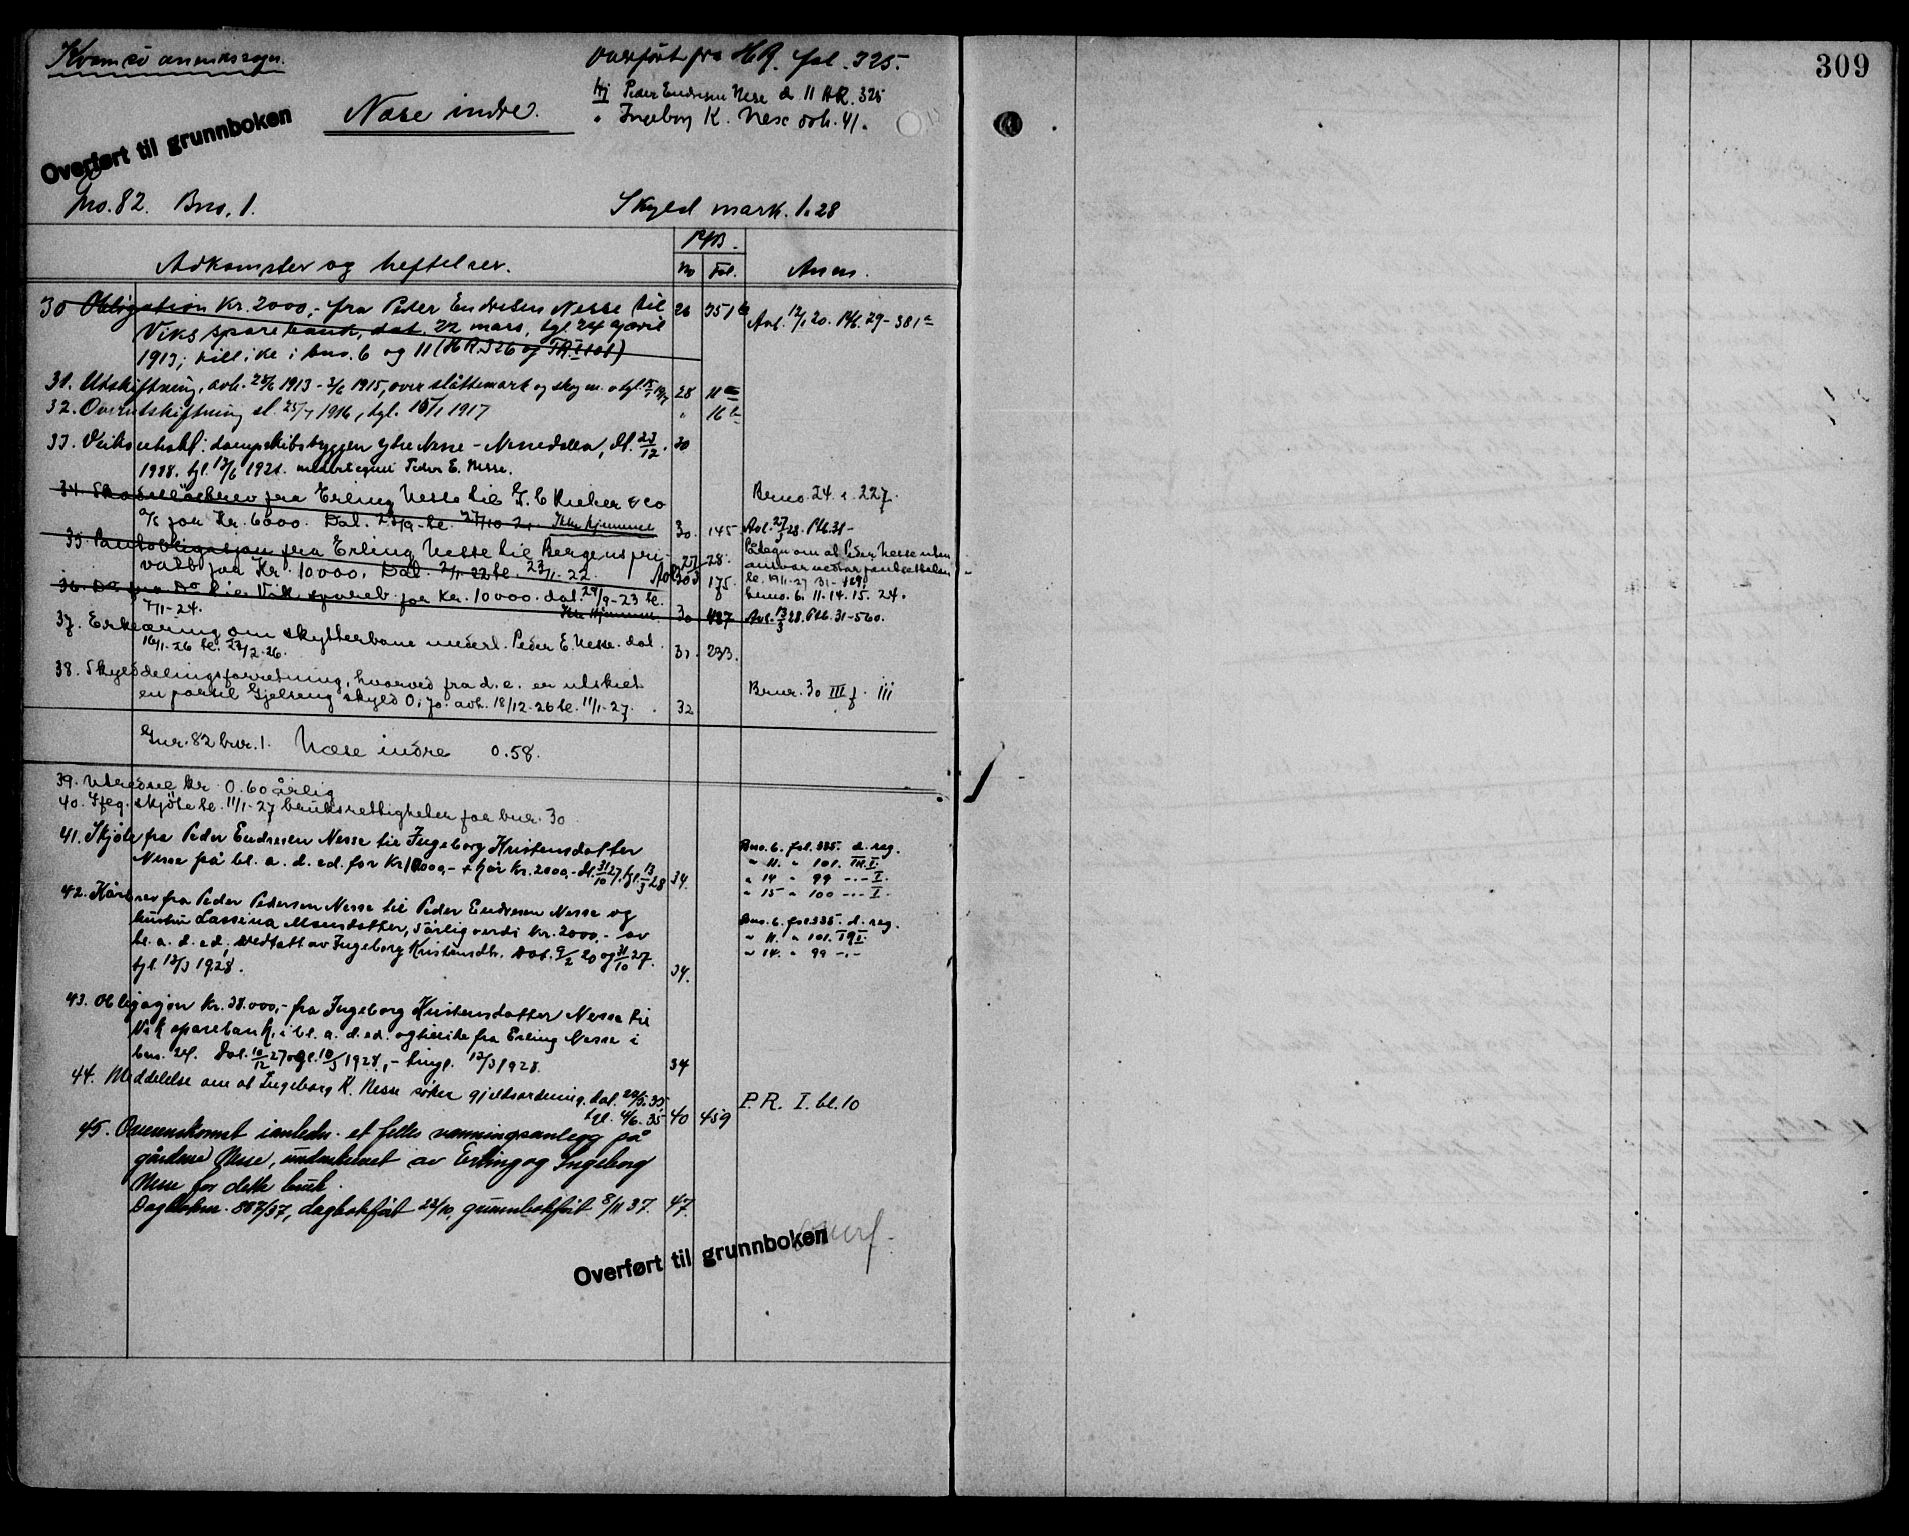 Kvamsö annekssogn.
Overført fra HR. fol. 325.
Hj Peder Endresen Nese d. 11 HR. 325
" Ingeborg K. Nese dok. 41.
309
Nese indre.
Overført til grunnboken
Gno. 82. Bno. 1.
Skyld mark. 1.28
P/B.
Adkomster og heftelser.
No Fol. Anm.
30 Obligation kr. 2000,- fra Peder Endresen Nesse til 26 351b
Viks sparebank, dat. 22 mars, tgl. 24 april Avl. 12/1 20. Ptb. 29-381a
1913; tillike i bno. 6 og 11 (HR. 326 og TR I 101)
31. Utskiftning, avh. 23/6 1913 - 3/6 1915, over slåttemark og skog m. v. tgl. 28 11
32. Overutskiftning sl. 25/7 1916, tgl. 16/1 1917 " 16
33. Veiks dampskibsbryggen ytre Nese - Nesedalen, dl. 23/12. 30
1918. tgl. 13/6 1921. Peder E. Nesse.
34. Skadeslösbrev fra Erling Nesse til G. C. Rieber & co Brno. 24. i. 227.
A/S for Kr. 6000. Dal. 27/9 - le. 27/10 21 Ikke hjemmel 30. 145 Avl. 27/3 28. Ptb. 31-
35. Pantobligasjon fra Erling Nesse til Bergens pri- 27 28. Pådegn om at Peder Nesse uten
vatb. for Kr. 10000. Dal. 2/1-22 le. 23/1-22. 175. ansvar vedtar pantsettelsen
le. 19/1-27 31-189.
36. Do fra Do til Vik spareb. for Kr. 10000. dal. 29/9-23 le. brno. 6. 11. 14. 15. 24.
7/1-24. Ikke hjemmel 30 487 Avl. 13/3 28. Ptb. 31-560.
37. Erklæring om skytterbane underl. Peder E. Nesse. dal.
16/1-26 le. 23/2-26. 31. 233.
38. Skylddelingsforretning, hvorved fra d. e. er utskilt
en parsel Gjelseng skyld 0,70. avh. 18/12-26 le. 11/1-27. 32 Brnr. 30 III f. iii
Gnr. 82 bnr. 1. Nese indre 0.58.
39. Utredsel kr 0.60 årlig
40. Ifeg. skjöte le. 11/1-27 bruksrettigheter for bnr. 30
41. Skjöte fra Peder Endresen Nesse til Ingeborg Kristensdatter Bno. 6. fol. 335. d. reg.
Nesse på bl. a. d. ed. for kr. 10000,- + kår kr. 2000,- dl. 31/10 27, tgl. 13/3 28 34. " 11. " 101. TR. I.
" 14 " 99 -"- I.
" 15 " 100 -"- I.
42. Kårbrev fra Peder Pedersen Nesse til Peder Endresen Nesse og
hustru Lassina Monsdatter, 5årlig verdi kr. 2000,- av Bno. 6. fol. 335. d. reg.
bl. a. d. ed., vedtatt av Ingeborg Kristensdtr. Dat. 9/2 20 og 31/10 27. " 11. " 101. TR I.
tgl. 13/3 1928. 34. " 14. " 99 -"-
43. Obligasjon kr. 38.000,- fra Ingeborg Kristensdatter Nesse til
Vik sparebank, i bl. a. d. ed. og tillike fra Erling Nesse i
bno. 24. Dat. 10/12 27 og 10/3 1928,- tingl. 13/3 1928. 34
44. Meddelelse om at Ingeborg K. Nesse söker gjeldsordning. dat. 29/5. 35 P.R. I. bl. 10
tgl. 4/6. 35 40 459
45. Overenskomst i anledn. et felles vanningsanlegg på
gårdene Nesse, underskrevet av Erling og Ingeborg
Nesse for dette bruk.
Dagboknr. 887/37, dagbokført 23/10, grunnbokført 8/11 37. 47.
Overført til grunnboken